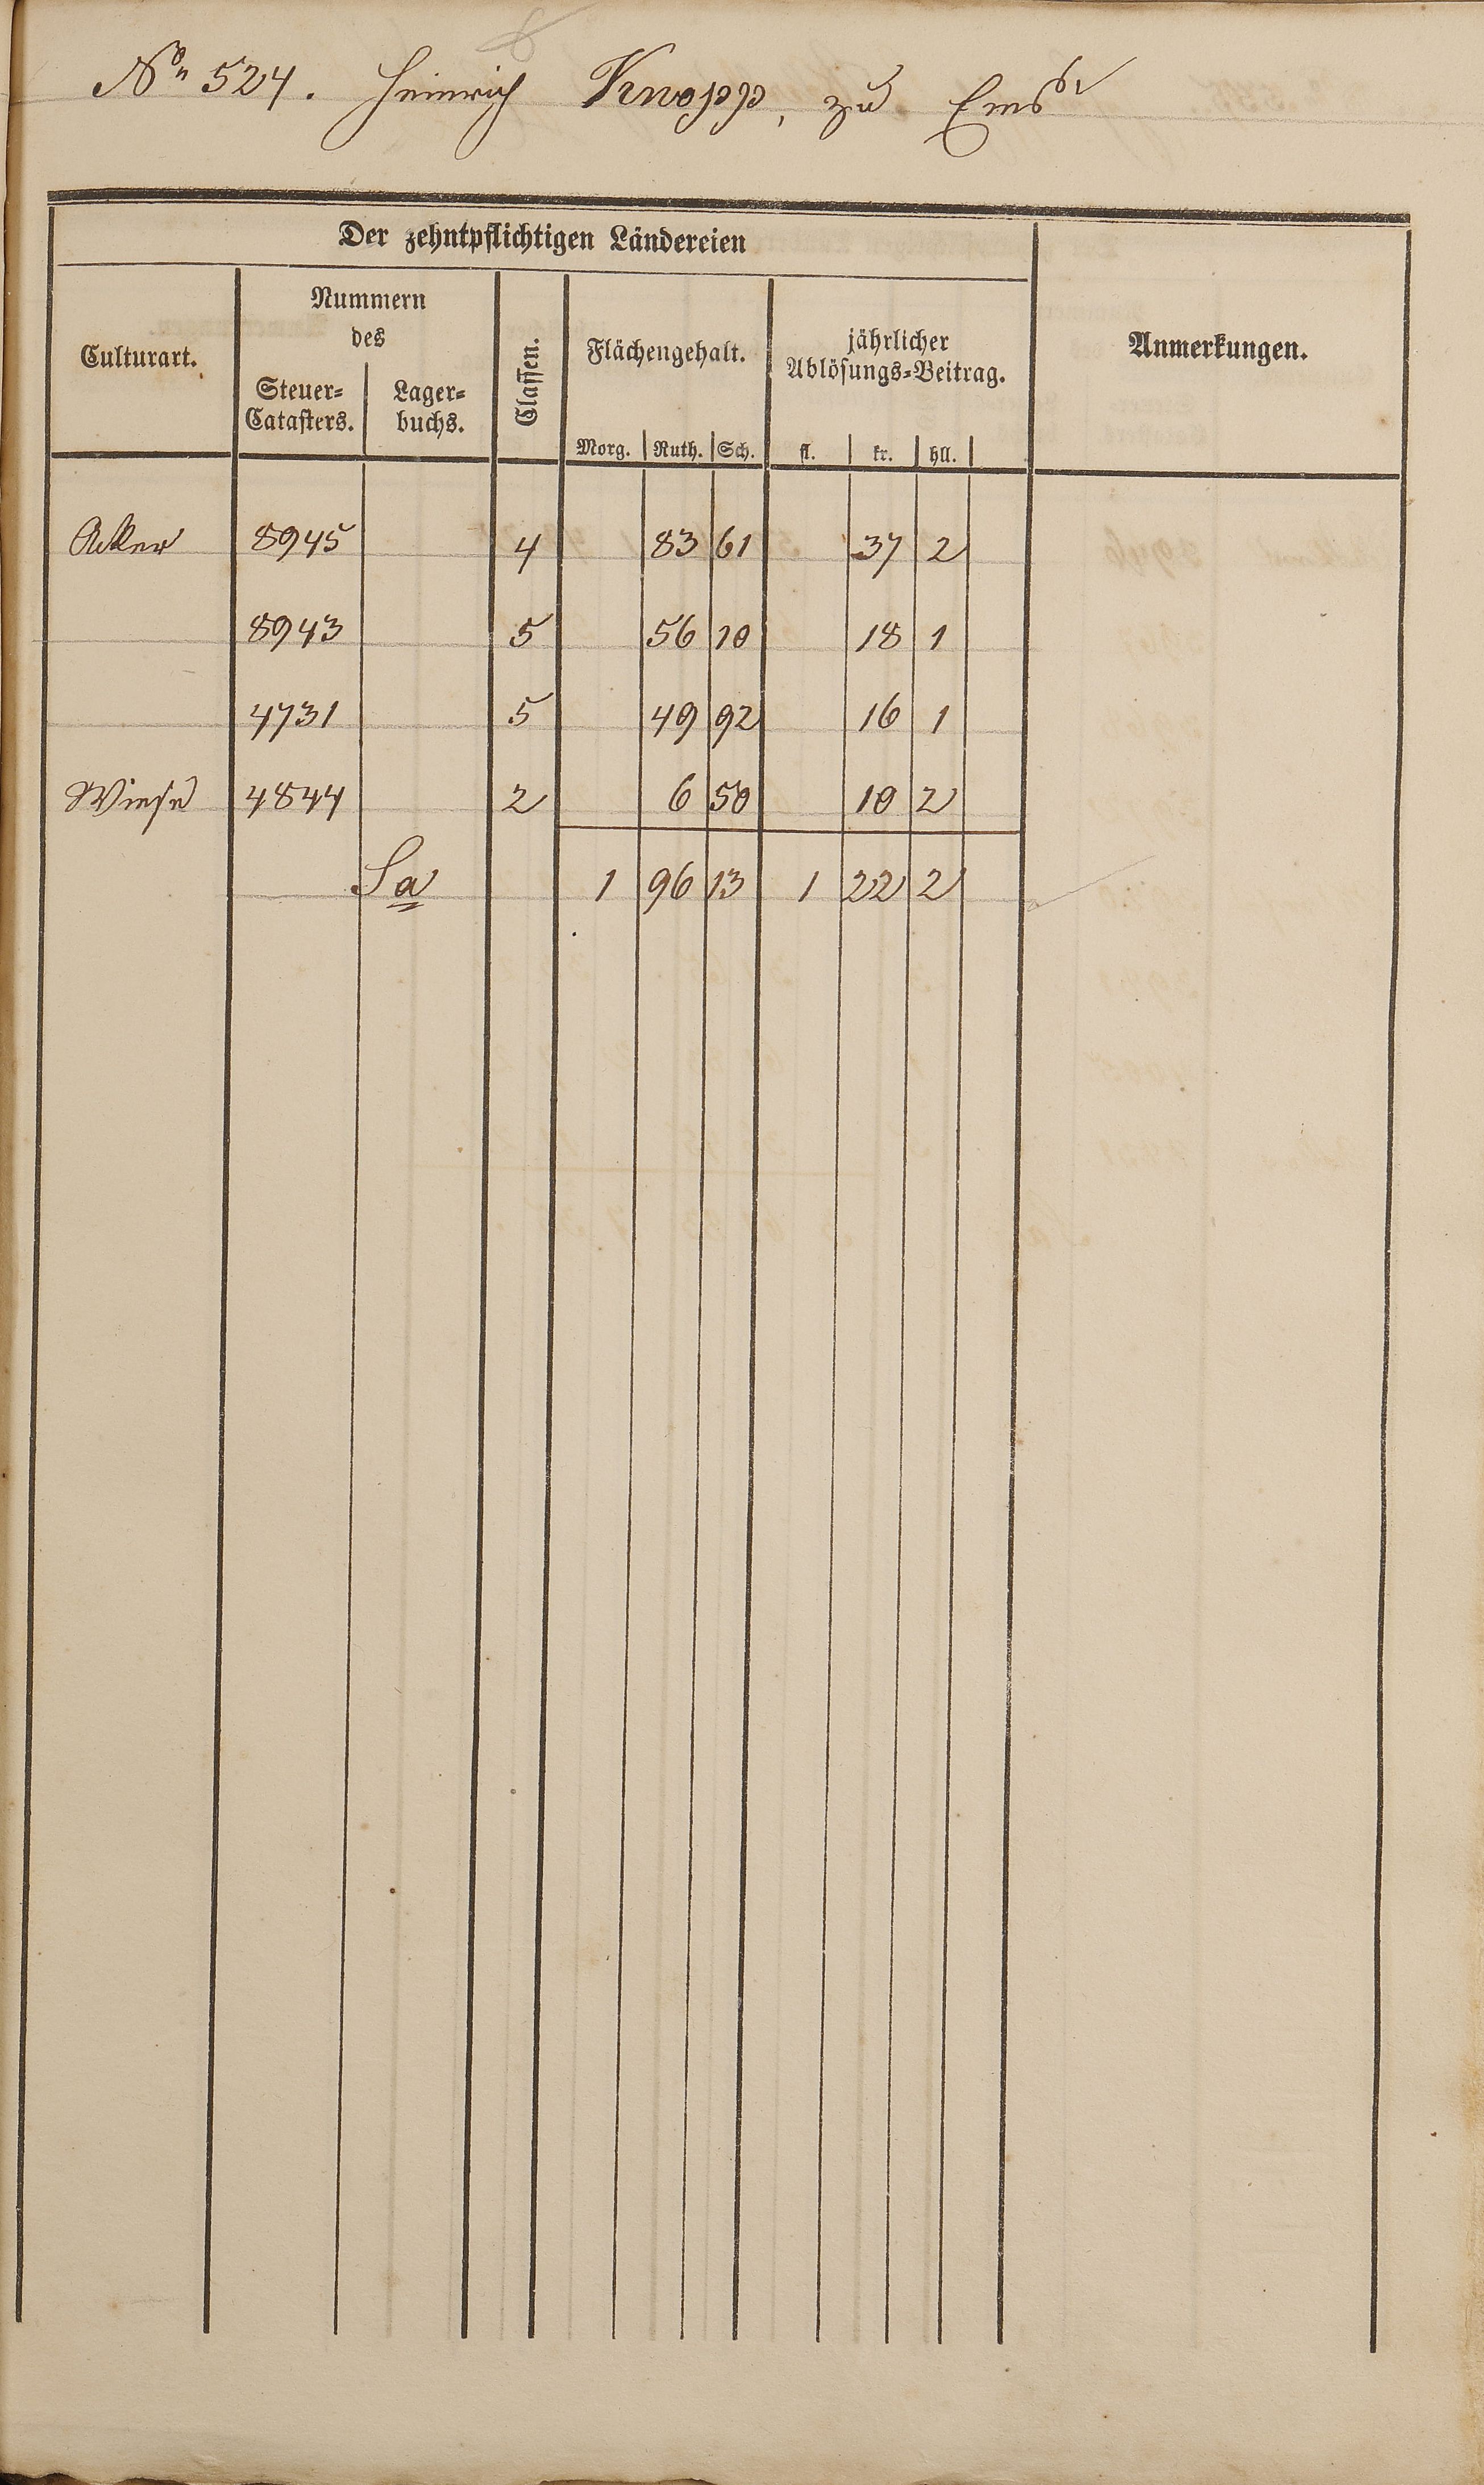 No 524. Heinrich Knopp, zu Ems
Der zehntpflichtigen Ländereien
Culturart. Nummern des Steuer=Catasters. Lager=buchs. Classen. Flächengehalt. Morg. Ruth. Sch. jährlicher Ablösungs=Beitrag. fl. kr. hll. Anmerkungen.
Acker 8945 4 83 61 37 2
8943 5 56 10 18 1
4731 5 49 92 16 1
Wiese 4844 2 6 50 10 2
Sa 1 96 13 1 22 2